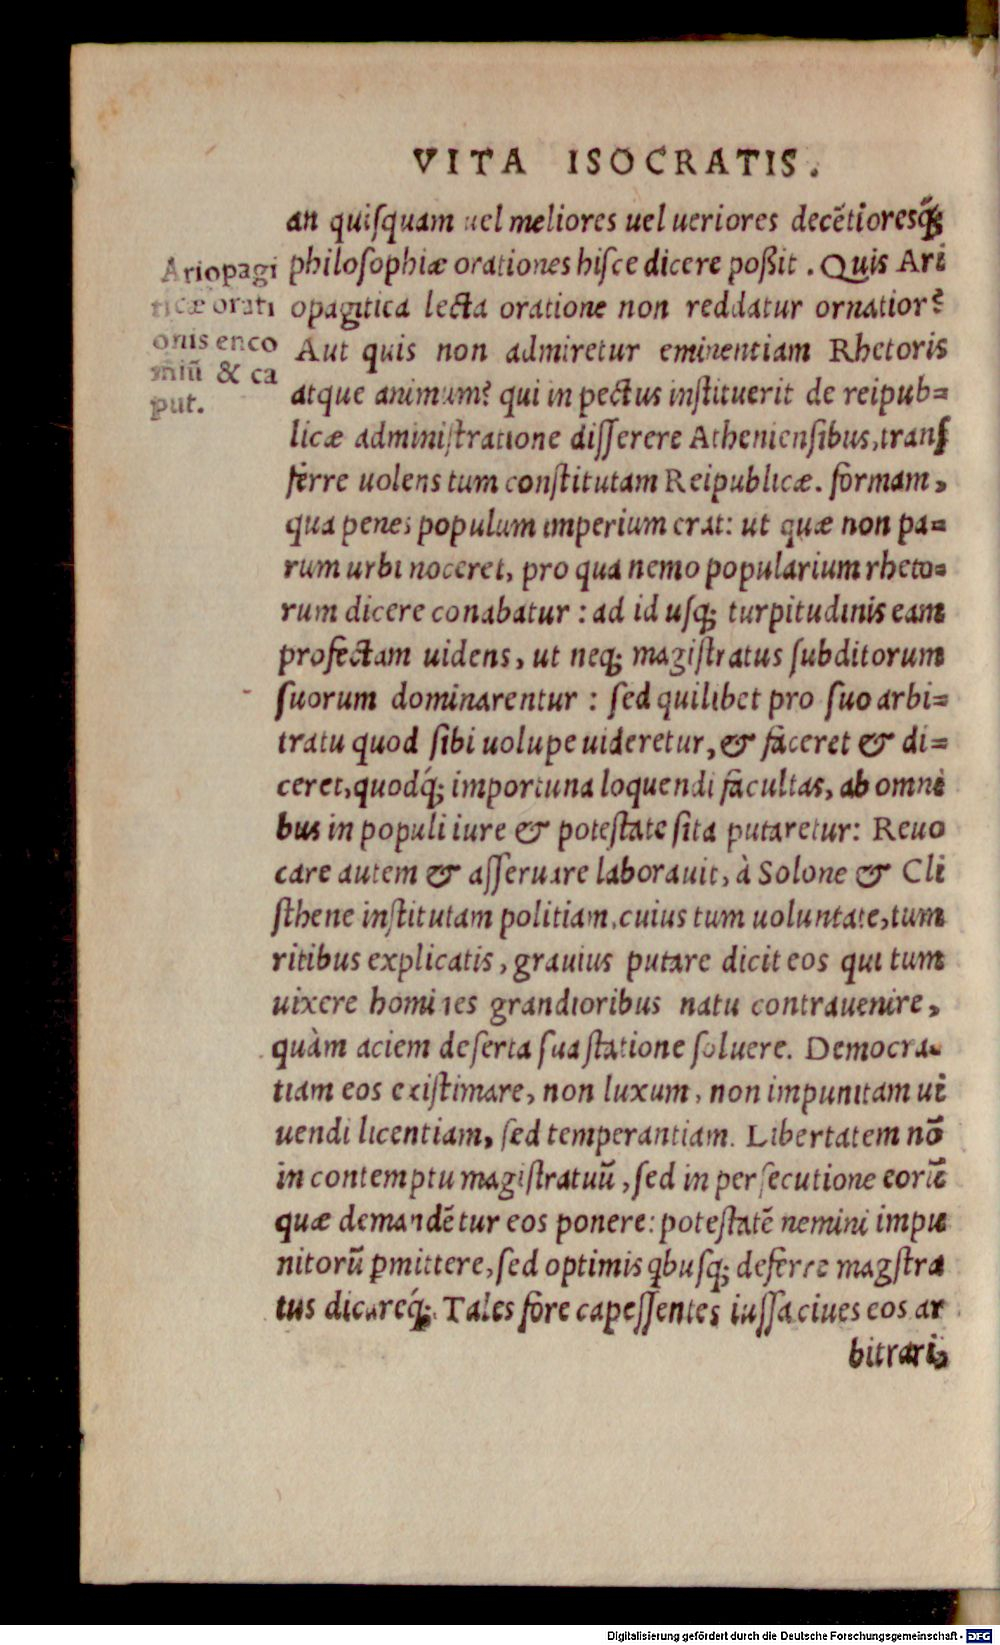 VITA ISOCRATIS.
an quiſquam uel meliores uel ueriores decẽtioresq́;
philoſophiæ orationes hiſce dicere poßit. Quis Ari
opagitica lecta oratione non reddatur ornatior?
Aut quis non admiretur eminentiam Rhetoris
atque animum? qui in pectus inſtituerit de reipub=
licæ adminiſtratione diſſerere Athenienſibus, tranſ
ferre uolens tum conſtitutam Reipublicæ. formam,
qua penes populum imperium erat: ut quæ non pa=
rum urbi noceret, pro qua nemo popularium rheto=
rum dicere conabatur: ad id uſq; turpitudinis eam
profectam uidens, ut neq; magiſtratus ſubditorum
ſuorum dominarentur: ſed quilibet pro ſuo arbi=
tratu quod ſibi uolupe uideretur, & faceret & di=
ceret, quodq́; importuna loquendi facultas, ab omni
bus in populi iure & poteſtate ſita putaretur: Reuo
care autem & aſſeruare laborauit, à Solone & Cli
ſthene inſtitutam politiam, cuius tum uoluntate, tum
ritibus explicatis, grauius putare dicit eos qui tum
uixere homines grandioribus natu contrauenire,
quàm aciem deſerta ſua ſtatione ſoluere. Democra-
tiam eos exiſtimare, non luxum, non impunitam ui
uendi licentiam, ſed temperantiam. Libertatem nõ
in contemptu magiſtratuũ, ſed in perſecutione eorũ
quæ demandẽtur eos ponere: poteſtatẽ nemini impu
nitorũ ꝑmittere, ſed optimis qbuſq; deferre magſtra
tus dicareq́;. Tales fore capeſſentes iuſſa ciues eos ar
bitrari,
Ariopagi
ticæ orati
onis enco
miũ & ca
put.
Digitalisierung gefördert durch die Deutsche Forschungsgemeinschaft - DFG